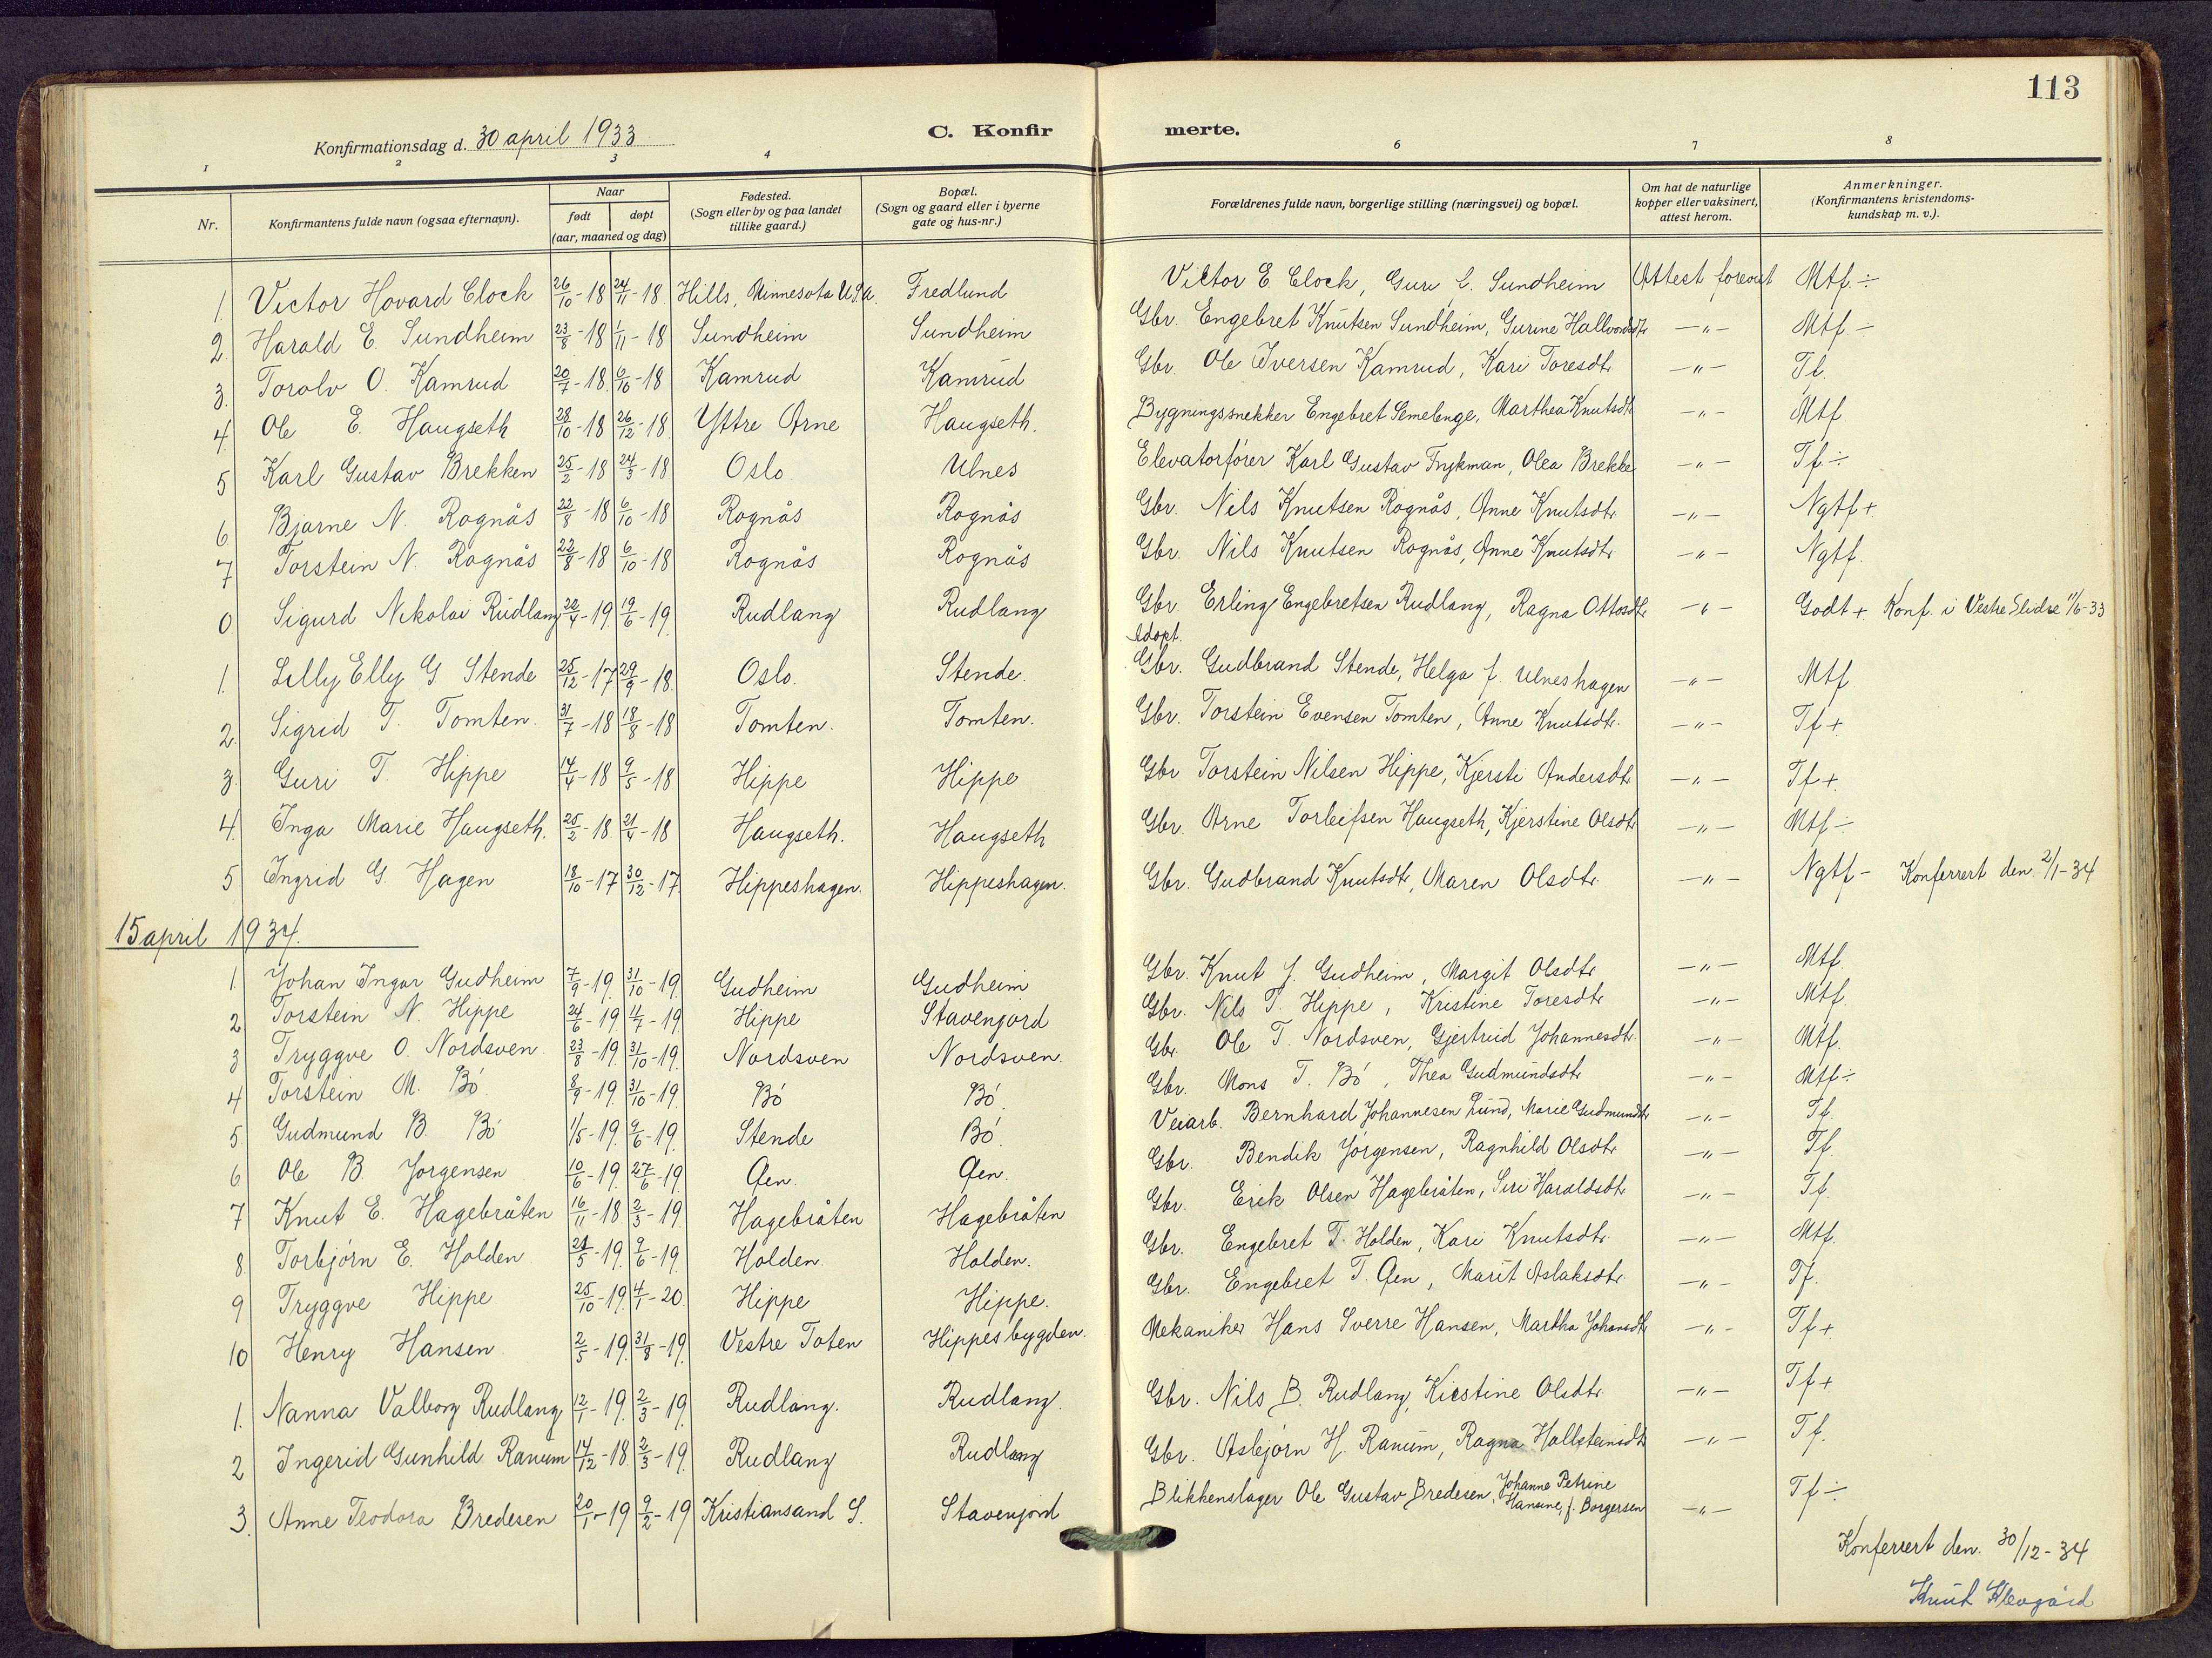 113
Konfirmationsdag d. 30 april 1933
C. Konfirmerte.
1 2 3 4 6 7 8
Nr. Konfirmantens fulde navn (ogsaa efternavn). Naar født døpt (aar, maaned og dag) Fødested. (Sogn eller by og paa landet tillike gaard.) Bopæl. (Sogn og gaard eller i byerne gate og hus-nr.) Forældrenes fulde navn, borgerlige stilling (næringsvei) og bopæl. Om hat de naturlige kopper eller vaksinert, attest herom. Anmerkninger. (Konfirmantens kristendomskundskap m. v.).
1. Victor Hovard Clock 26/10-18 24/11-18. Hills, Minnesota U.S.A. Fredlund Victor E Clock, Guri L. Sundheim Attest forevist Mtf. ÷
2. Harald E. Sundheim 23/8-18 1/11-18 Sundheim Sundheim Gbr. Engebret Knutsen Sundheim, Gurine Hallvordsdtr —"— Mtf. ÷
3. Torolv O. Kamrud 20/7-18 6/10-18 Kamrud Kamrud Gbr. Ole Iversen Kamrud, Kari Toresdtr —"— Tf.
4. Ole E. Haugseth 28/10-18 26/12-18. Yttre Arne Haugseth. Bygningssnekker Engebret Semelenge, Marthea Knutsdtr —"— Mtf
5 Karl Gustav Brekken 25/2-18 24/3-18 Oslo Ulnes Elevatorfører Karl Gustav Frykman, Olea Brekke —"— Tf ÷
6 Bjarne N. Rognås 22/8-18 6/10-18 Rognås Rognås Gbr. Nils Knutsen Rognås, Anne Knutsdtr. —"— Ngtf +
7 Torstein N. Rognås 22/8-18 6/10-18 Rognås Rognås Gbr. Nils Knutsen Rognås, Anne Knutsdtr. —"— Ngtf.
0 Sigurd Nikolai Rudlang 22/4-19. 19/6-19. Rudlang Rudlang Gbr. Erling Engebretsen Rudlang, Ragna Ottosdtr. —"— Godt +. Konf. i Vestre Slidre 11/6-33
Adopt.
1. Lilly Elly G Stende 25/12-17 29/9-18. Oslo. Stende. Gbr. Gudbrand Stende, Helga f. Ulneshagen —"— Mtf
2. Sigrid T. Tomten. 31/7-18 18/8-18 Tomten. Tomten. Gbr. Torstein Evensen Tomten, Anne Knutsdtr. —"— Tf +
3. Guri T. Hippe 14/4-18 9/5-18 Hippe Hippe Gbr Torstein Nilsen Hippe, Kjersti Andersdtr —"— Tf +.
4. Inga Marie Haugseth. 25/2-18. 21/4-18 Haugseth. Haugseth Gbr. Arne Torleifsen Haugseth, Kjerstine Olsdtr —"— Mtf ÷
5 Ingrid G. Hagen 18/10-17 30/12-17 Hippeshagen. Hippeshagen. Gbr. Gudbrand Knutsdtr, Maren Olsdtr. —"— Ngtf - Konferert den 2/1-34
15 april 1934.
1. Johan Ingar Gudheim 7/9-19. 31/10-19. Gudheim Gudheim Gbr. Knut J. Gudheim, Margit Olsdtr —"— Mtf.
2 Torstein N. Hippe 24/6-19. -19. Hippe Stavenjord Gbr. Nils T. Hippe, Kristine Toresdtr —"— Mtf.
3 Tryggve O. Nordsven 23/8-19. 31/10-19. Nordsven Nordsven. Gbr. Ole T. Nordsven, Gjertrud Johannesdtr. —"— Mtf.
4 Torstein M. Bö 8/9-19. 31/10-19. Bö Bö Gbr. Mons T. Bö, Thea Gudmundsdtr —"— Mtf ÷
5 Gudmund B. Bö 1/5-19. 9/6-19. Stende Bö. Veiarb. Bernhard Johannesen Lund, Marie Gudmundsdtr —"— Tf.
6 Ole B. Jørgensen 10/6-19. 27/6-19. Øen. Øen. Gbr. Bendik Jørgensen, Ragnhild Olsdtr —"— Tf.
7 Knut E. Hagebråten 16/11-18. 2/3-19. Hagebråten Hagebråten Gbr. Erik Olsen Hagebråten, Siri Haraldsdtr —"— Tf.
8. Torbjørn E. Holden -19. 9/6-19. Holden. Holden. Gbr. Engebret T. Holden, Kari Knutsdtr. —"— Mtf.
9 Tryggve Hippe 25/10-19. 4/1-20. Hippe Hippe. Gbr. Engebret T. Øen, Marit Aslaksdtr. —"— Tf.
10 Henry Hansen 2/5-19. 31/8-19. Vestre Toten Hippesbygden. Mekaniker Hans Sverre Hansen, Martha Johansdtr —"— Tf +.
1. Nanna Valborg Rudlang 12/1-19. 2/3-19. Rudlang. Rudlang. Gbr. Nils B. Rudlang, Kirstine Olsdtr. —"— Tf +
2 Ingerid Gunhild Ranum 14/12-18. 2/3-19. Rudlang Rudlang Gbr. Asbjørn H. Ranum, Ragna Hallsteinsdtr —"— Tf.
3. Anne Teodora Bredesen 20/1-19 9/2-19 Kristiansand S. Stavenjord Blikkenslager Ole Gustav Bredesen, Johanne Petrine Hansine, f. Borgersen —"— Tf ÷
Konferert den 30/12-34
Knut Klevgård